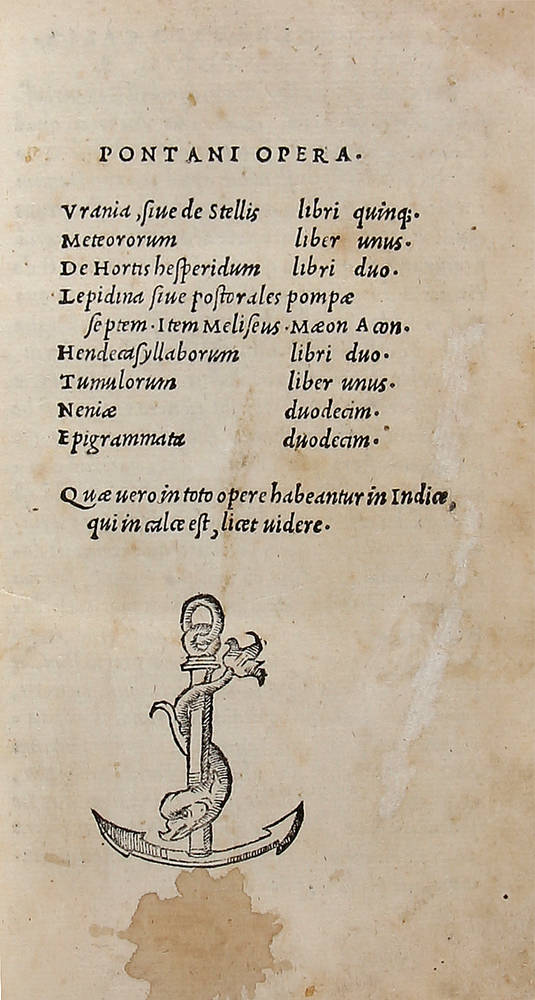 PONTANI OPERA.
Vrania, ſiue de Stellis libri quinq;.
Meteororum liber unus.
De Hortis heſperidum libri duo.
Lepidina ſiue poſtorales pompæ
ſeptem. Item Meliſeus. Mæon Acon.
Hendecaſyllaborum libri duo.
Tumulorum liber unus.
Neniæ duodecim.
Epigrammata duodecim.
Quæ uero in toto opere habeantur in Indice,
qui in calce eſt, licet uidere.